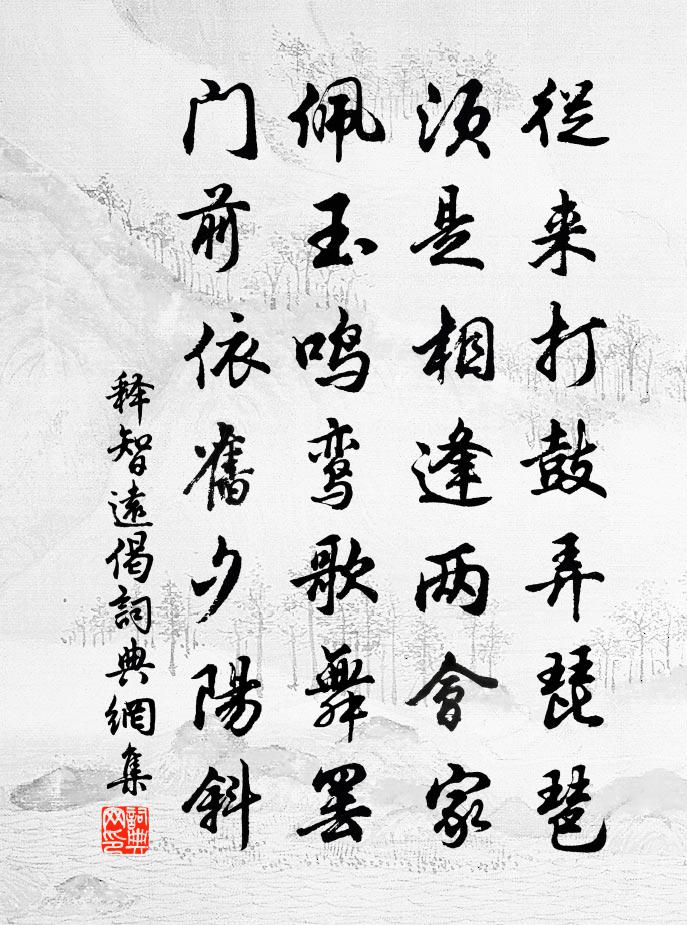 從来打鼓弄琵琶
须是相逢两會家
佩玉鸣鸾歌舞罢
门前依舊夕陽斜
释智遠偈詞典網集
詞典
网印